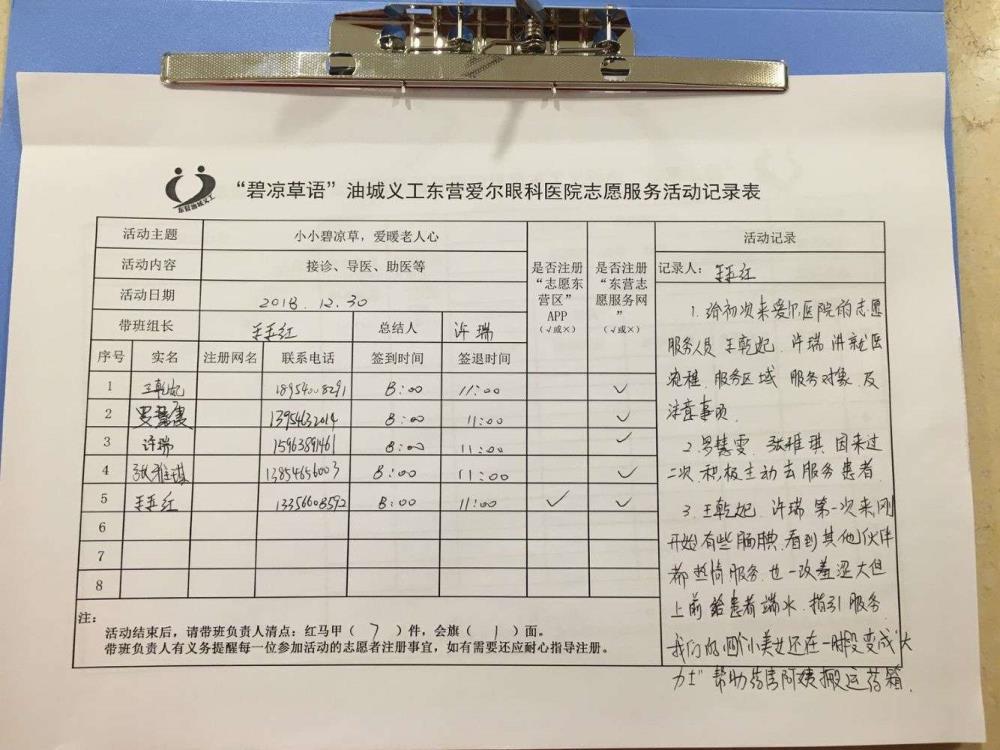 东营油城义工
“碧凉草语”油城义工东营爱尔眼科医院志愿服务活动记录表
活动主题 小小碧凉草，爱暖老人心
活动内容 接诊、导医、助医等
活动日期 2018.12.30
带班组长 王玉红 总结人 许瑞
是否注册“志愿东营区”APP（√或×）
是否注册“东营志愿服务网”（√或×）
序号 实名 注册网名 联系电话 签到时间 签退时间
1 王乾妃 18954008291 8:00 11:00 √
2 罗慧雯 13954632014 8:00 11:00 √
3 许瑞 15963891461 8:00 11:00 √
4 张雅琪 13854656003 8:00 11:00 √
5 王玉红 13356608592 8:00 11:00 √ √
6
7
8
注：
活动结束后，请带班负责人清点：红马甲（7）件，会旗（1）面。
带班负责人有义务提醒每一位参加活动的志愿者注册事宜，如有需要还应耐心指导注册。
活动记录
记录人：王玉红
1. 给初次来爱尔医院的志愿
服务人员 王乾妃、许瑞 讲就医
流程、服务区域 服务对象 及
注意事项.
2. 罗慧雯、张雅琪 因来过
二次,积极主动去服务患者
3. 王乾妃、许瑞 第一次来,刚
开始有些腼腆,看到其他伙伴
都热情服务,也一改羞涩大胆
上前给患者端水、指引服务
我们的四个小美女还在一时段变成“大
力士”帮助药房阿姨搬运药箱.